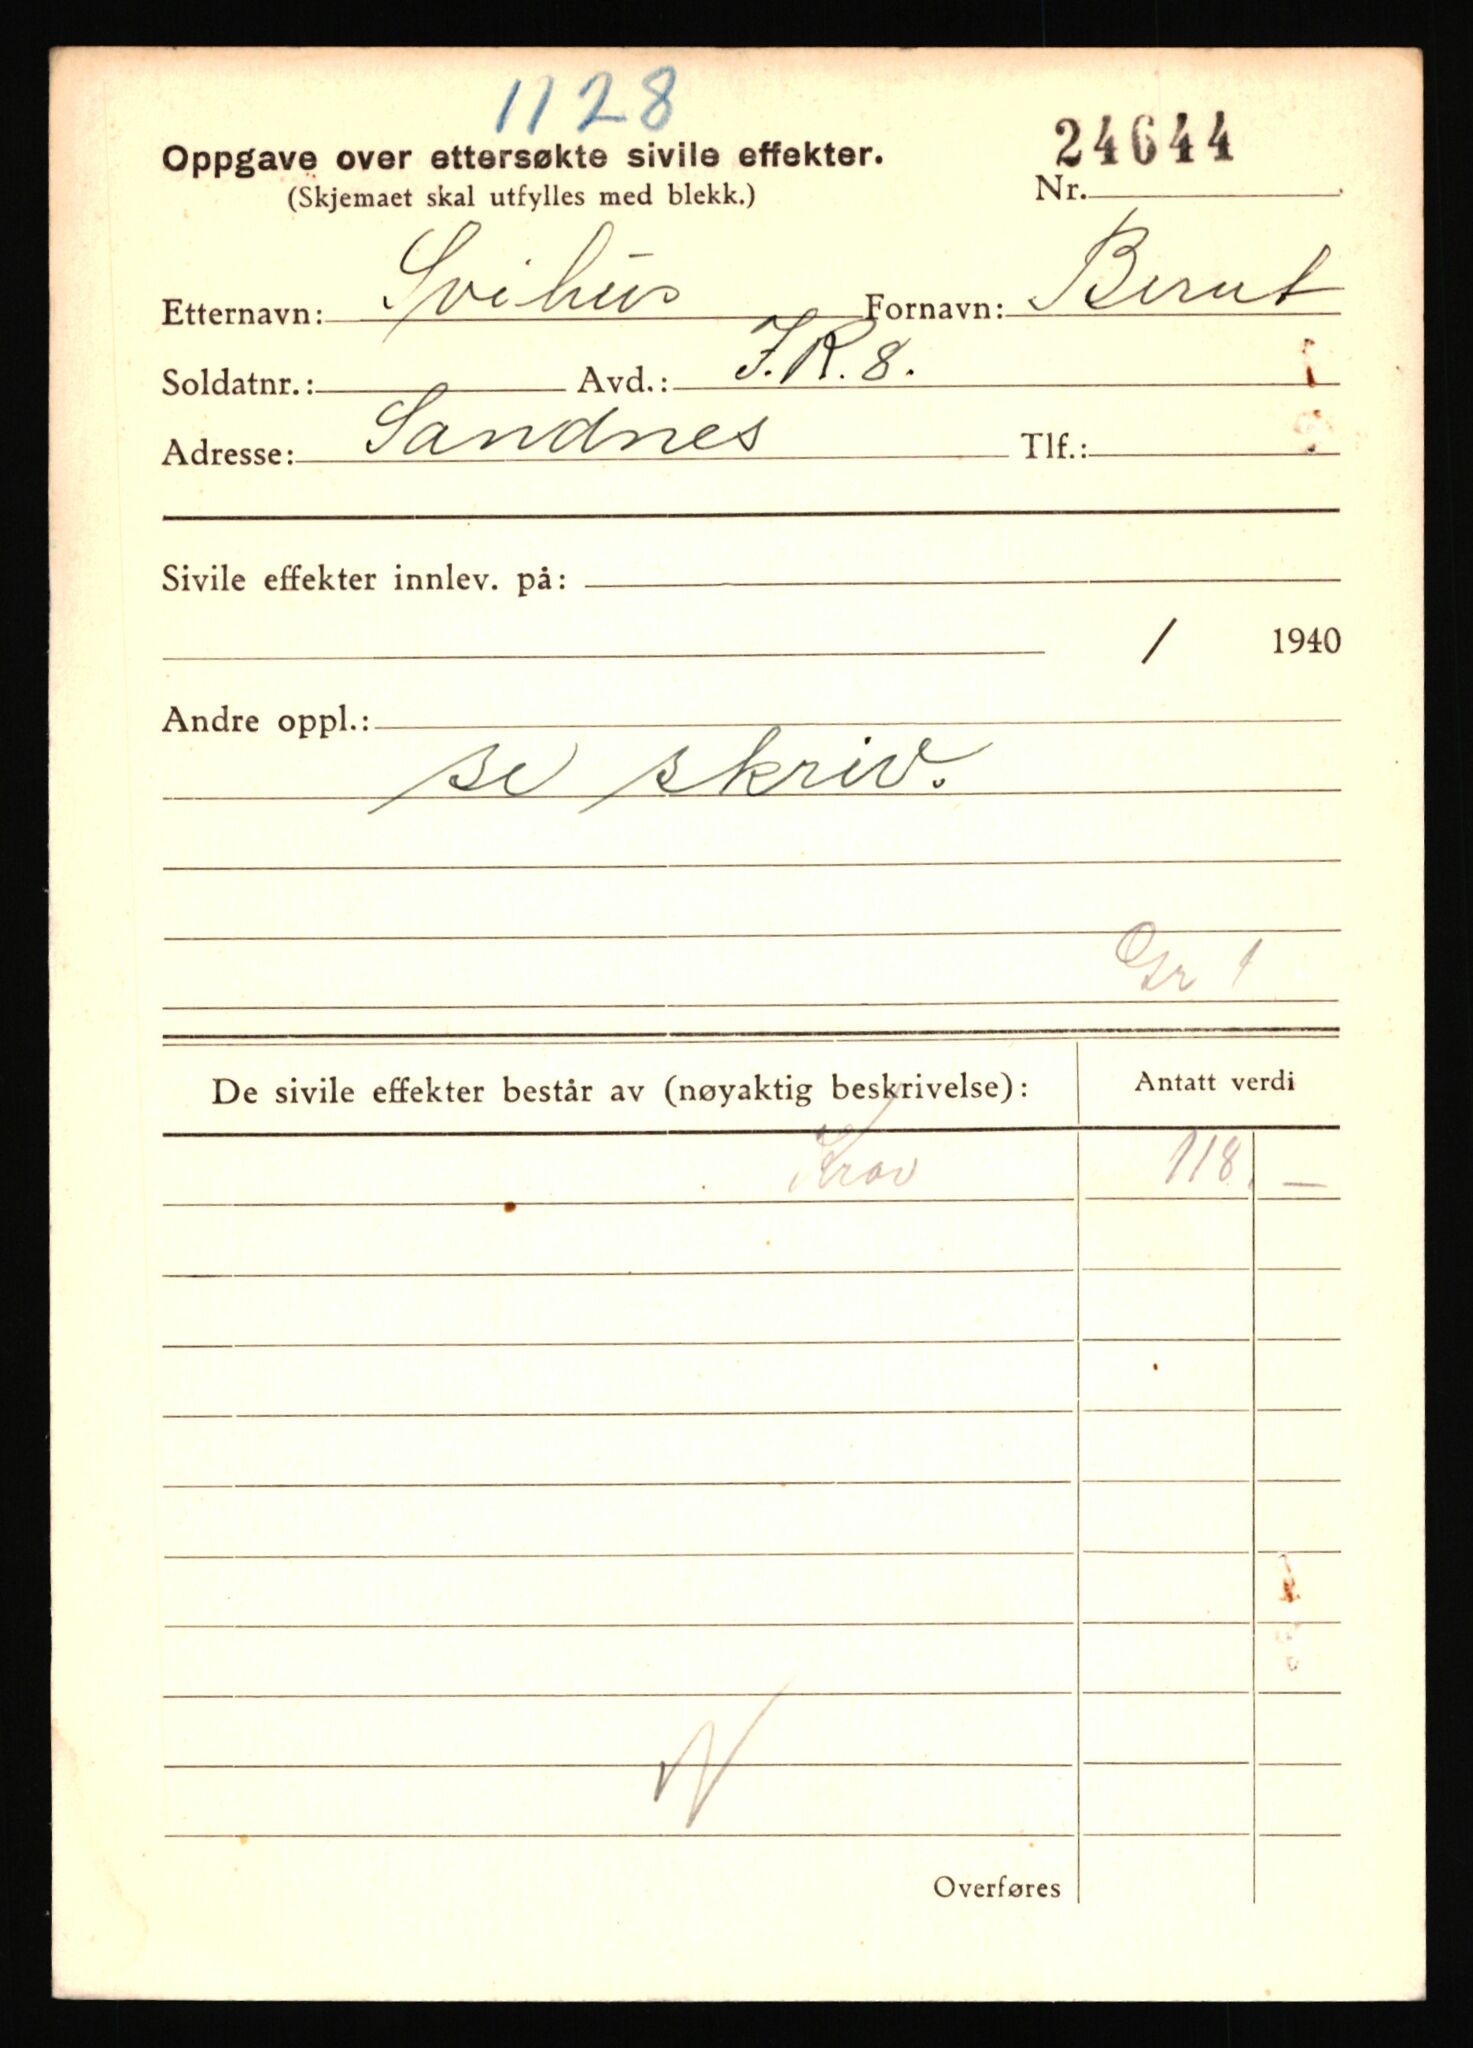 1128
Oppgave over ettersøkte sivile effekter.
24644
(Skjemaet skal utfylles med blekk.)
Nr.
Etternavn: Svihus Fornavn: Bernt
Soldatnr.: Avd.: I.R. 8.
Adresse: Sandnes Tlf.:
Sivile effekter innlev. på:
/ 1940
Andre oppl.:
se skriv.
Gr 1
De sivile effekter består av (nøyaktig beskrivelse): Antatt verdi
Krav 118. —
N
Overføres